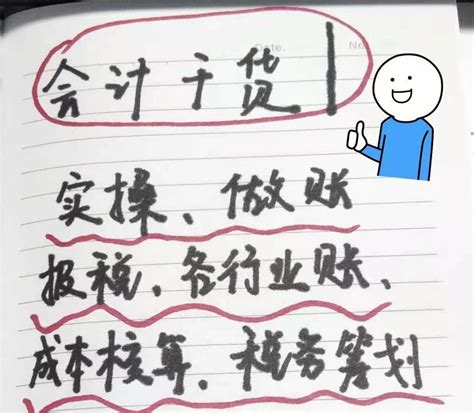 Date.
No
会计干货
实操、做账
报税、各行业账、
成本核算、税务筹划